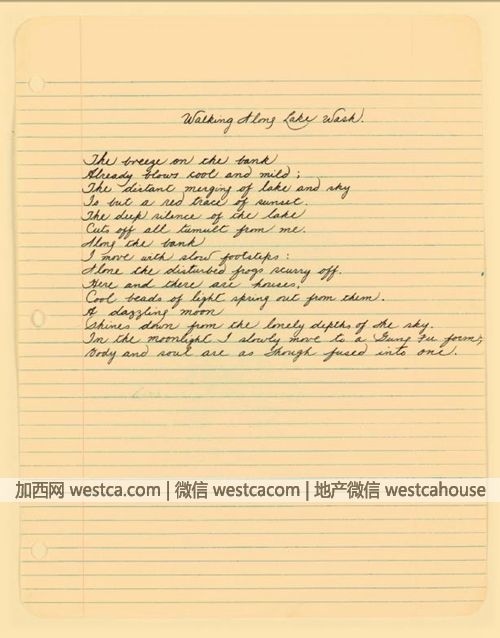 Walking Along Lake Wash.
The breeze on the bank
Already blows cool and mild;
The distant merging of lake and sky
Is but a red trace of sunset.
The deep silence of the lake
Cuts off all tumult from me.
Along the bank
I move with slow footsteps:
Alone the disturbed frogs scurry off.
Here and there are houses,
Cool beads of light spring out from them.
A dazzling moon
Shines down from the lonely depths of the sky.
In the moonlight I slowly move to a Gung Fu form;
Body and soul are as though fused into one.
加西网 westca.com | 微信 westcacom | 地产微信 westcahouse